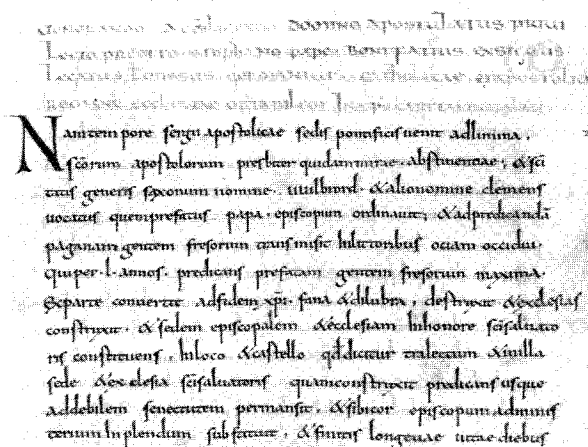 DOMINO APOSTOLATUS PRIUI
LEGIO PREDITO STEPHANO PAPAE BONIFATIUS EXIGUUS
LEGATUS GERMANICUS CATHOLICAE
Nam tempore sergii apostolicae sedis pontificis uenit adlimina ·
scorum apostolorum presbiter quidam mirae · abstinentiae · & sci
tatis generis saxonum nomine · uuilbrord · & alio nomine clemens
uocatus quem prefatus papa · episcopum ordinauit; & ad predicandā
paganam gentem fresorum transmisit in littoribus occidui ·
qui per · l · annos · predicans prefatam gentem fresorum maxima ·
Ex parte conuertit adfidem xpi · fana & dilubra · destruxit & ecclesias
construxit · & sedem episcopalem & ecclesiam inhonore sci saluato
ris constituens · inloco & castello qd dicitur traiectum & in illa
sede & ecclesia sci saluatoris quam construxit predicans usque
ad debilem senectutem permansit · & sibi cor episcopum adminis
terium inplendum substituit · & finitis longeuae uitae diebus